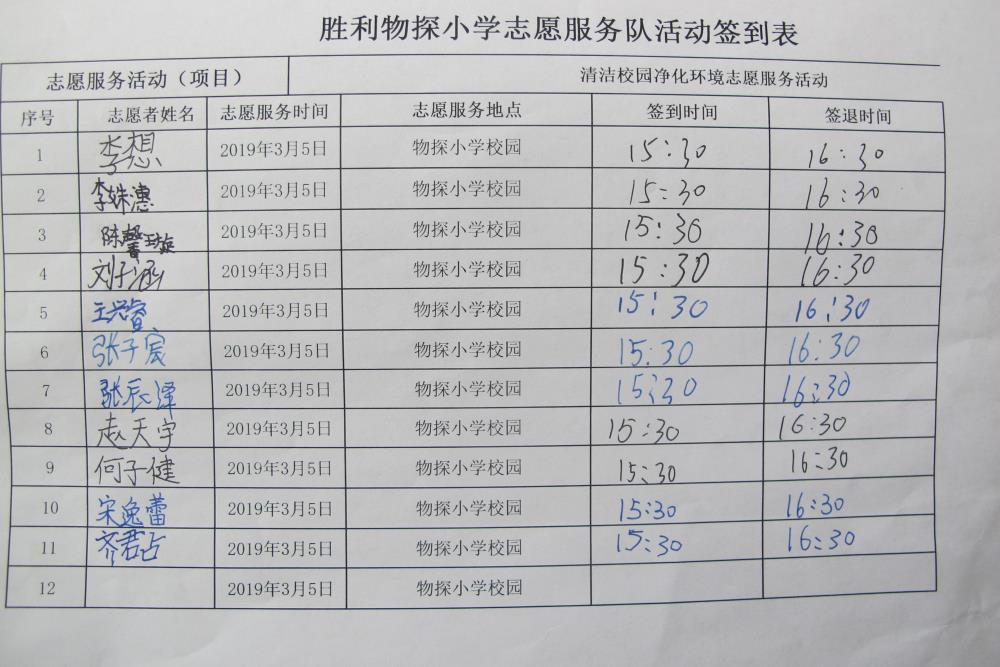 胜利物探小学志愿服务队活动签到表
志愿服务活动（项目） 清洁校园净化环境志愿服务活动
序号 志愿者姓名 志愿服务时间 志愿服务地点 签到时间 签退时间
1 李想 2019年3月5日 物探小学校园 15:30 16:30
2 李姝潓 2019年3月5日 物探小学校园 15:30 16:30
3 陈馨璇 2019年3月5日 物探小学校园 15:30 16:30
4 刘子涵 2019年3月5日 物探小学校园 15:30 16:30
5 王兴睿 2019年3月5日 物探小学校园 15:30 16:30
6 张子宸 2019年3月5日 物探小学校园 15:30 16:30
7 张辰泽 2019年3月5日 物探小学校园 15:30 16:30
8 赵天宇 2019年3月5日 物探小学校园 15:30 16:30
9 何子健 2019年3月5日 物探小学校园 15:30 16:30
10 宋逸蕾 2019年3月5日 物探小学校园 15:30 16:30
11 齐君占 2019年3月5日 物探小学校园 15:30 16:30
12 2019年3月5日 物探小学校园